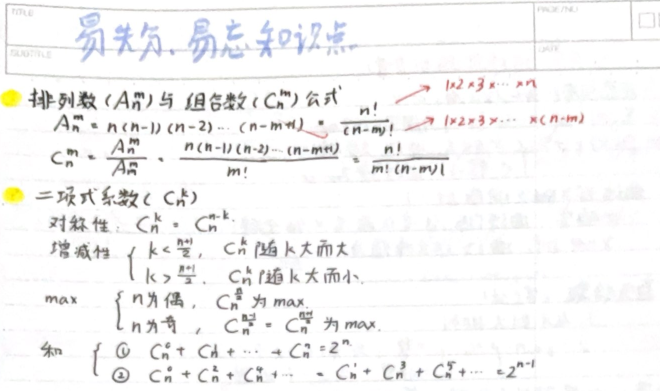 TITLE
PAGE(NO.)
易失分、易忘知识点
SUBTITLE
DATE
排列数(Aₙᵐ)与 组合数(Cₙᵐ)公式
1×2×3×…×n
Aₙᵐ = n(n-1)(n-2)…(n-m+1) = n!/(n-m)!
1×2×3×…×(n-m)
Cₙᵐ = Aₙᵐ/Aₘᵐ = n(n-1)(n-2)…(n-m+1)/m! = n!/m!(n-m)!
二项式系数(Cₙᵏ)
对称性: Cₙᵏ = Cₙⁿ⁻ᵏ.
增减性 { k < (n+1)/2, Cₙᵏ随k大而大
k > (n+1)/2, Cₙᵏ随k大而小.
max { n为偶, Cₙ^(n/2) 为max.
n为奇, Cₙ^((n-1)/2) = Cₙ^((n+1)/2) 为max.
和 { ① Cₙ⁰ + Cₙ¹ + … + Cₙⁿ = 2ⁿ.
② Cₙ⁰ + Cₙ² + Cₙ⁴ + … = Cₙ¹ + Cₙ³ + Cₙ⁵ + … = 2ⁿ⁻¹